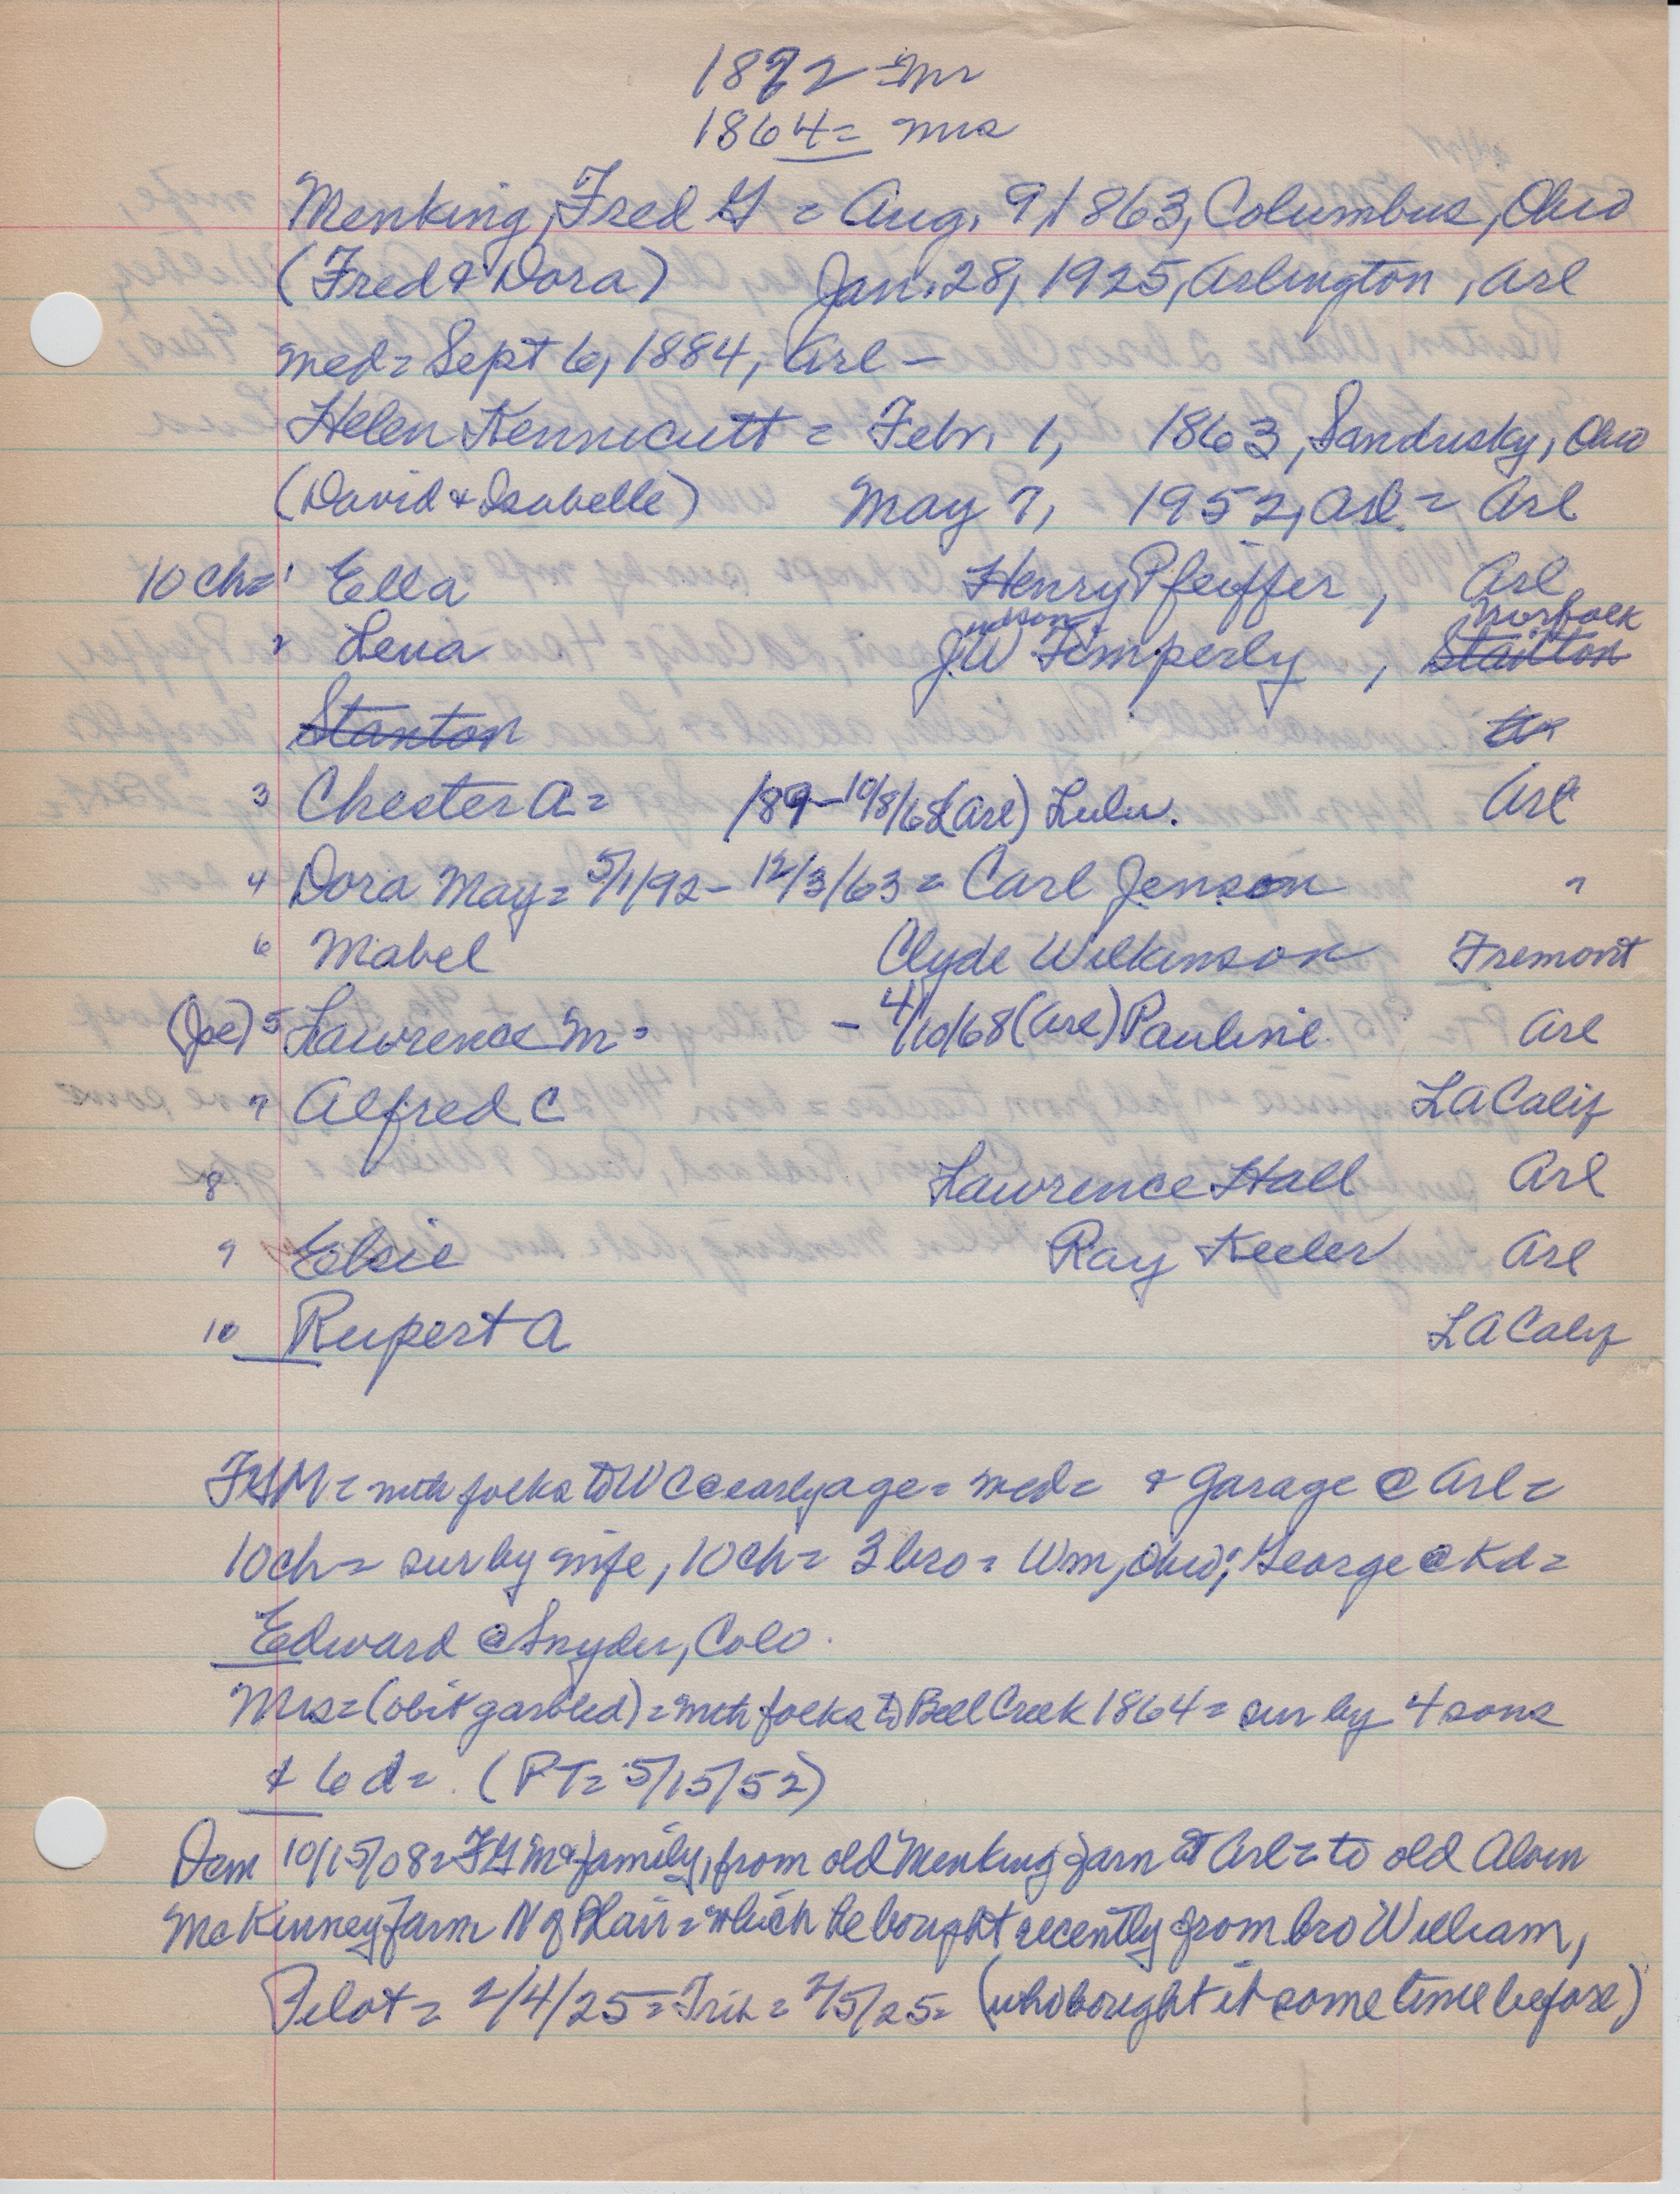 1872 = Mr
1864 = Mrs
Menking, Fred G = Aug. 9, 1863, Columbus, Ohio
(Fred & Dora) Jan. 28, 1925, Arlington, Arl
med = Sept 6, 1884, Arl –
Helen Kennicutt = Febr. 1, 1863, Sandusky, Ohio
(David & Isabelle) May 7, 1952, Arl. = Arl
10 ch = 1 Ella Henry Pfeiffer, Arl
2 Lena Judson JW Timperly, Norfolk Stanton
Stanton
3 Chester A = /89 – 10/8/62 (Arl) Lulu. Arl
4 Dora May = 5/1/92 – 12/3/63 = Carl Jenson "
6 Mabel Clyde Wilkinson Fremont
(Joe) 5 Lawrence M = – 4/10/68 (Arl) Pauline Arl
7 Alfred C LA Calif
8 Lawrence Hall Arl
9 Elsie Ray Keeler Arl
10 Rupert A LA Calif
FGM = with folks to WC @ early age = med = & garage @ Arl =
10 ch = sur by wife, 10 ch = 3 bro = Wm, Ohio; George @ Kd =
Edward @ Snyder, Colo.
Mrs = (obit garbled) = with folks to Bell Creek 1864 = sur by 4 sons
& 6 d = (PT = 5/15/52)
Dem 10/15/08 = FGM & family, from old Menking farm at Arl = to old Alvin
McKinney farm N of Blair = which he bought recently from bro William,
Pilot = 2/4/25 = Trib = 2/5/25 = (who bought it some time before)